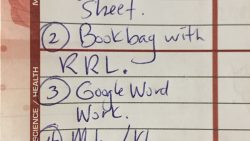 Sheet.
② Bookbag with
RRL.
③ Google Word
Work.
SCIENCE / HEALTH